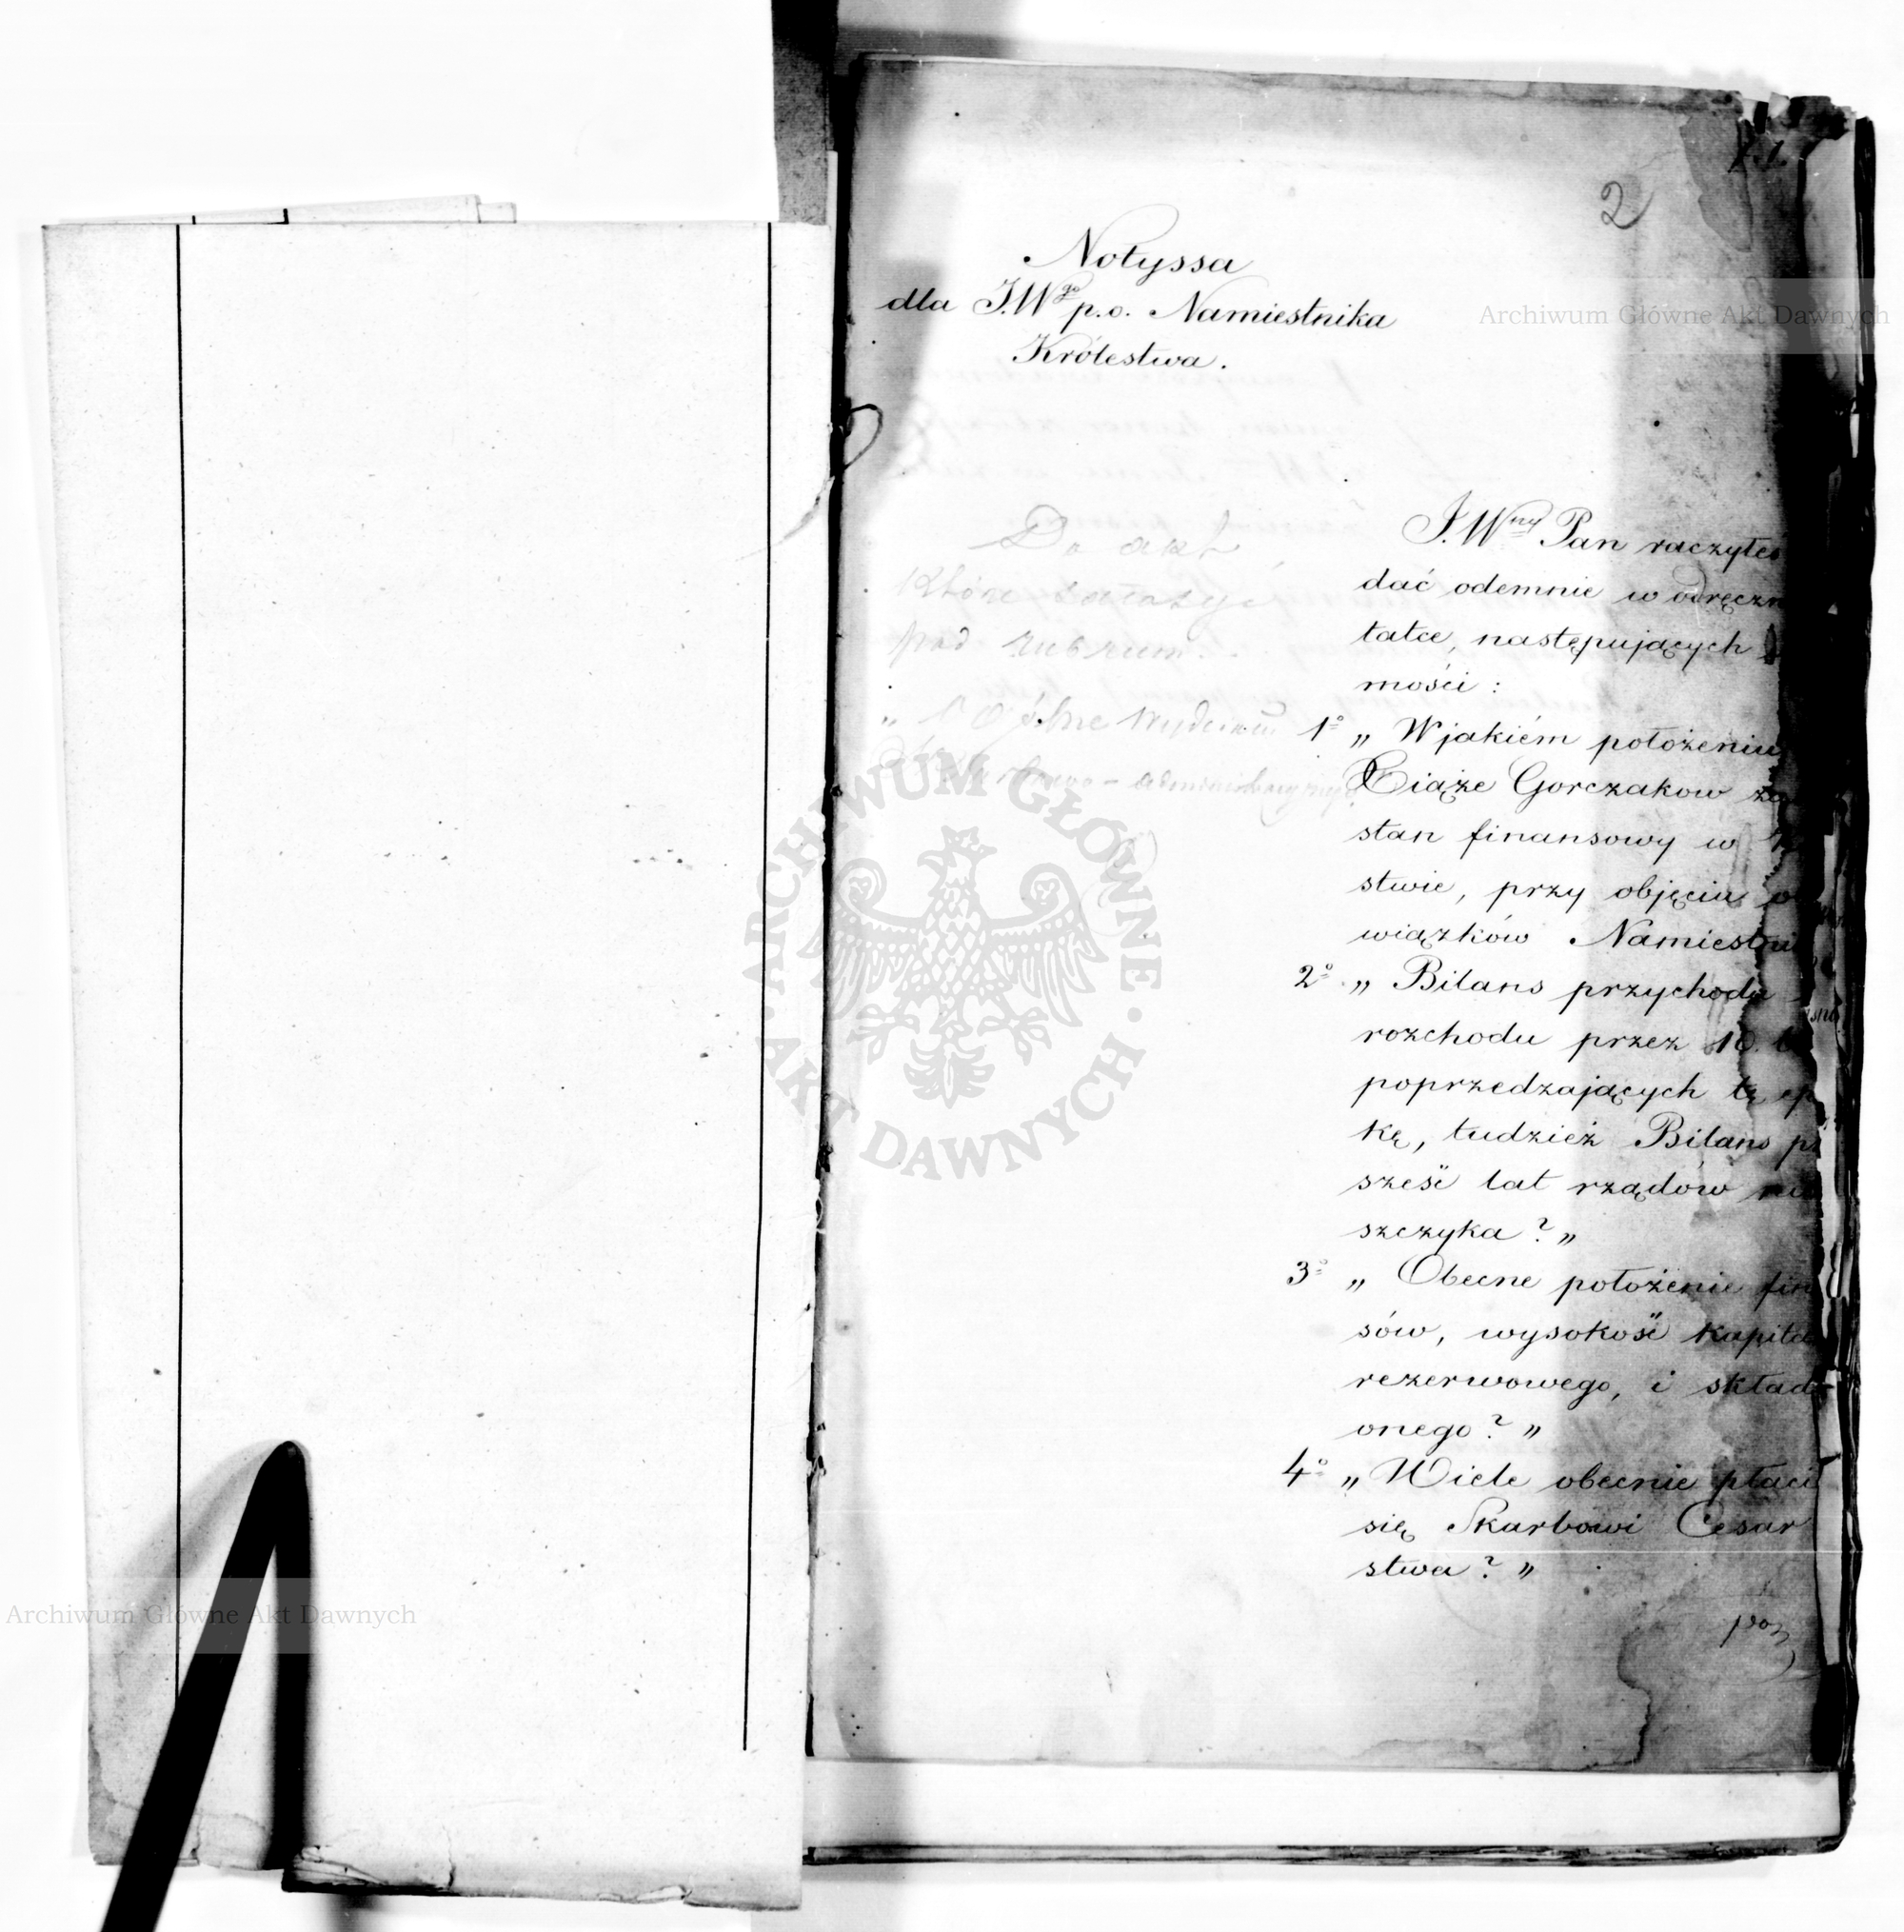 2
Notyssa
dla J.W^go p.o. Namiestnika
Królestwa.
Do akt
które założyć
pod rubrum:
J.W^ny Pan raczyłeś
dać odemnie w odręczn
tatce, następujących
mości:
1° „ W jakiém położeniu
Xiąże Gorczakow za
stan finansowy w
stwie, przy objęciu o
wiązków Namiestni
2° „ Bilans przychodu
rozchodu przez 10. l
poprzedzających tę ep
kę, tudzież Bilans p
sześć lat rządów
szczyka? „
3° „ Obecne położenie fin
sów, wysokość kapita
rezerwowego, i skład
onego? „
4° „ Wiele obecnie płaci
się Skarbowi Cesar
stwa? „
Archiwum Główne Akt Dawnych
Archiwum Główne Akt Dawnych
ARCHIWUM GŁÓWNE
AKT DAWNYCH